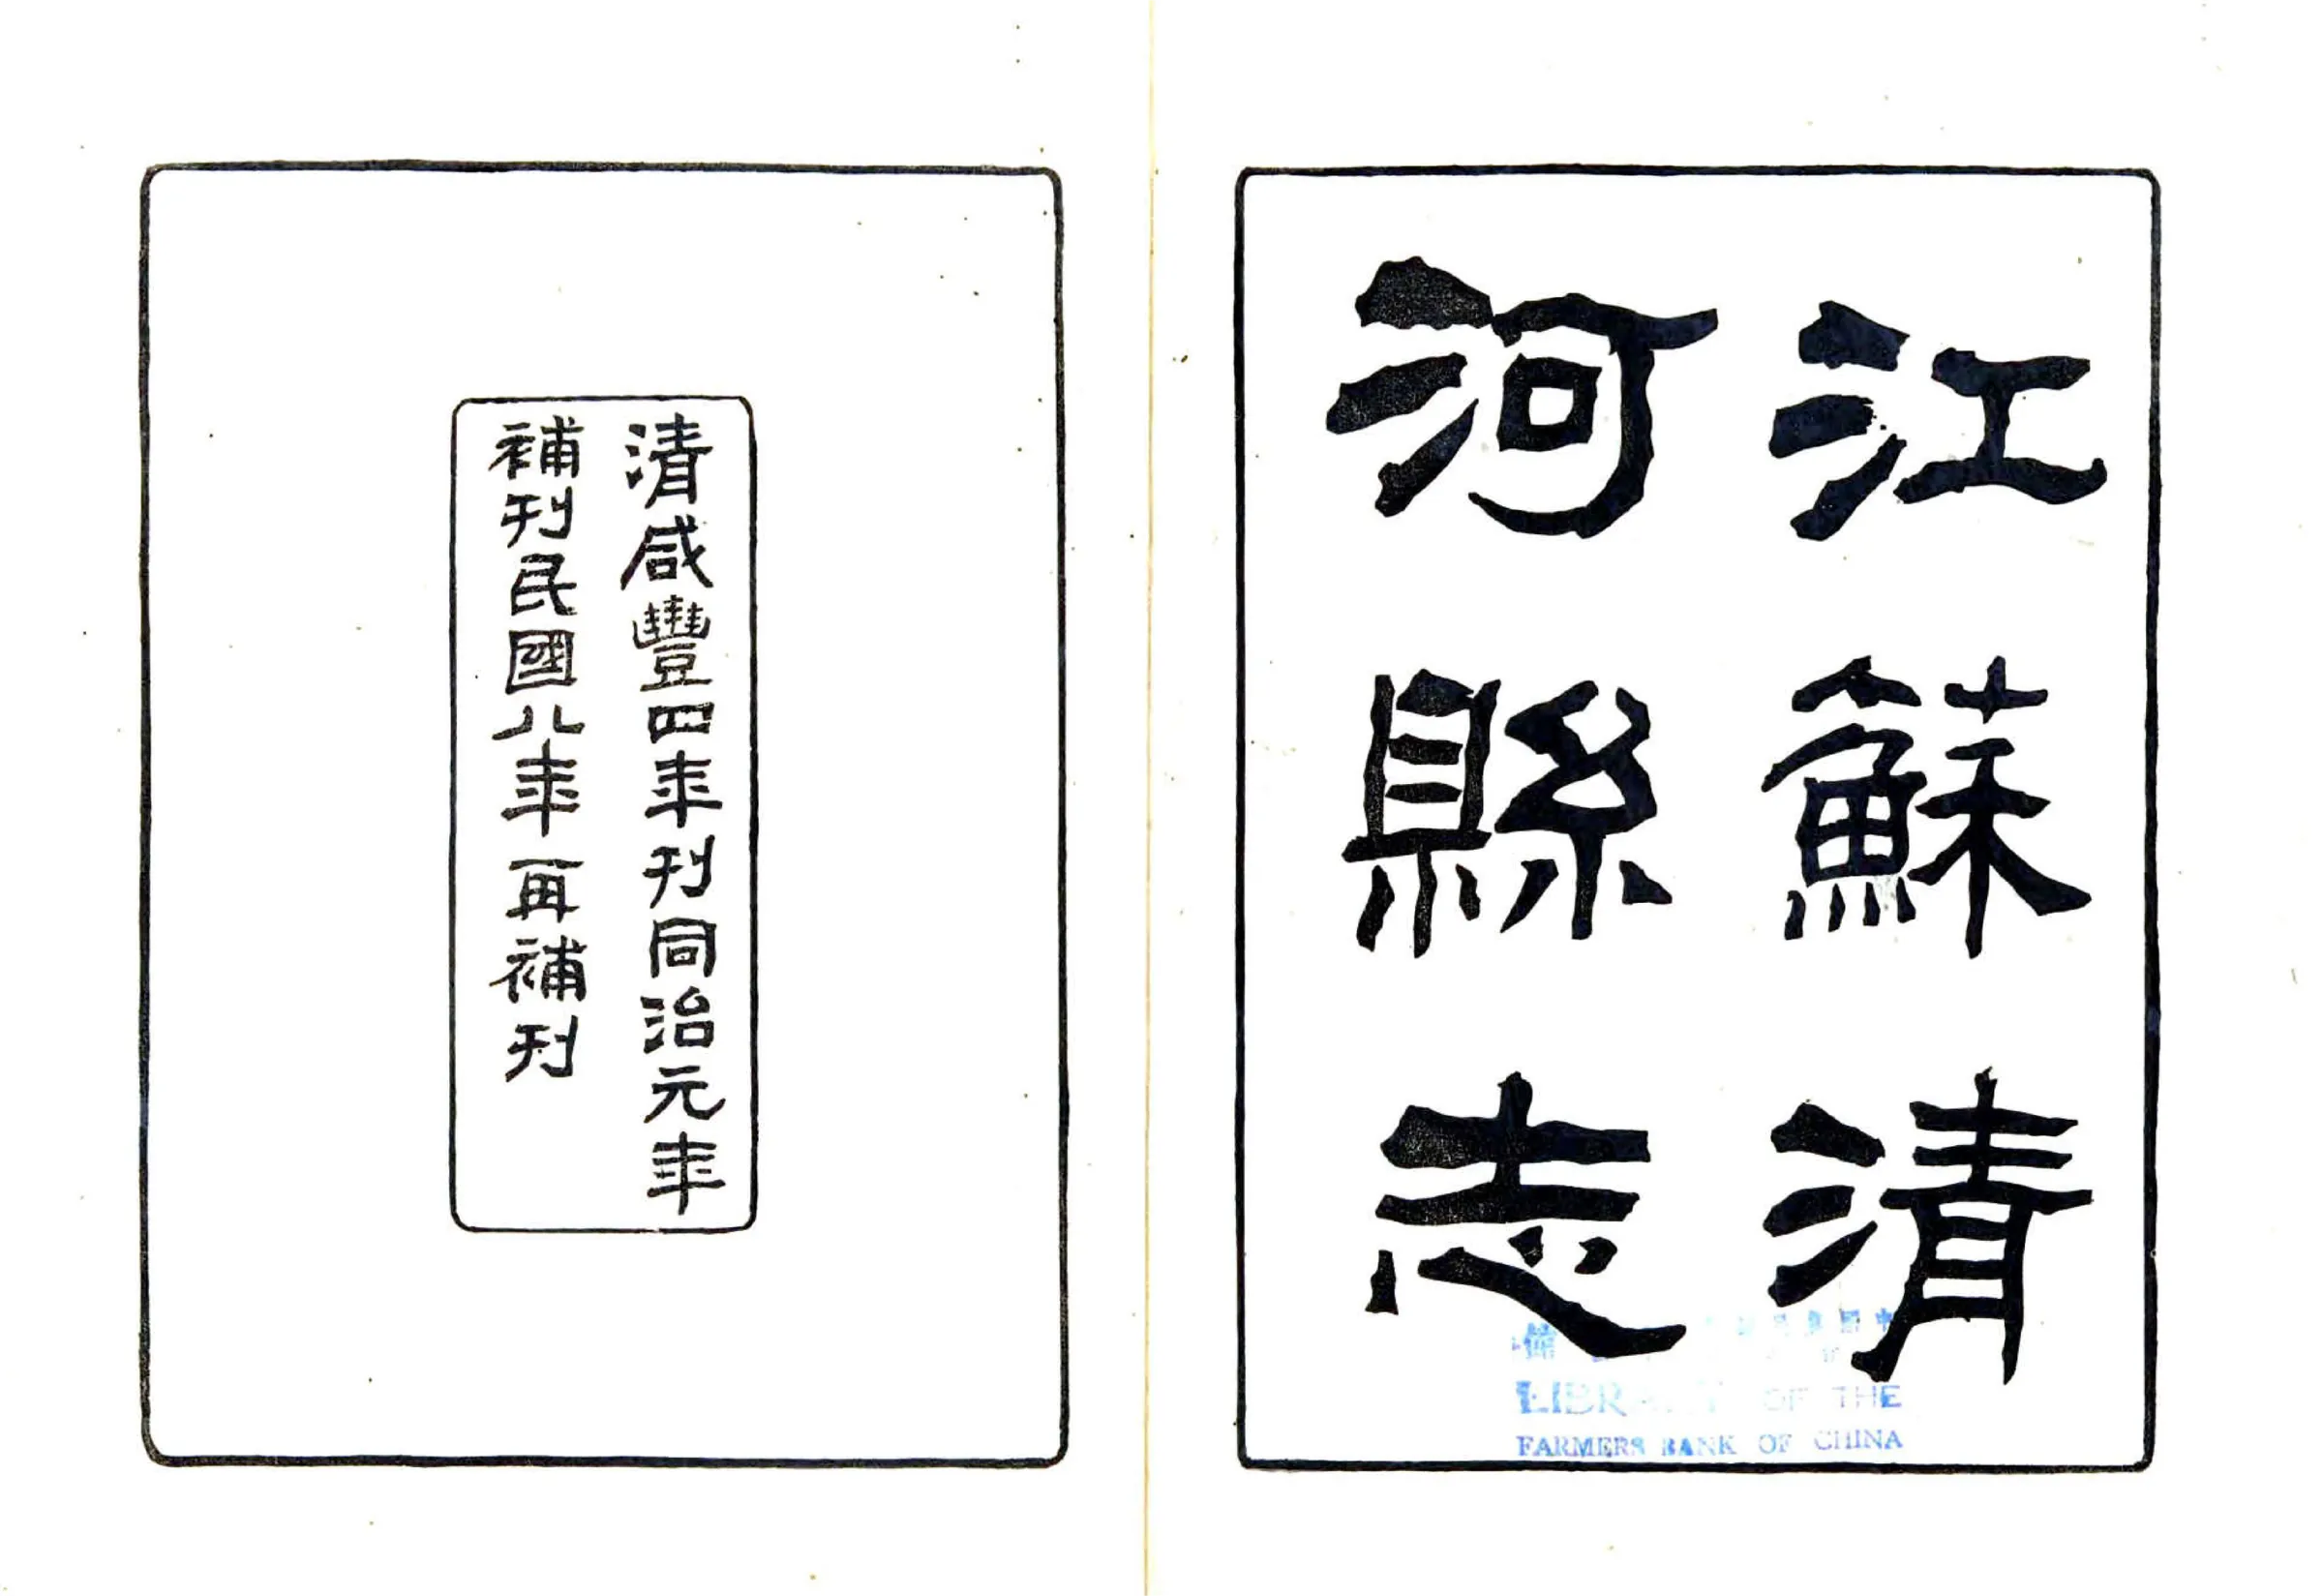 江蘇清
河縣志
清咸豐四年刊同治元年
補刊民國八年再補刊
OF THE
FARMERS BANK OF CHINA